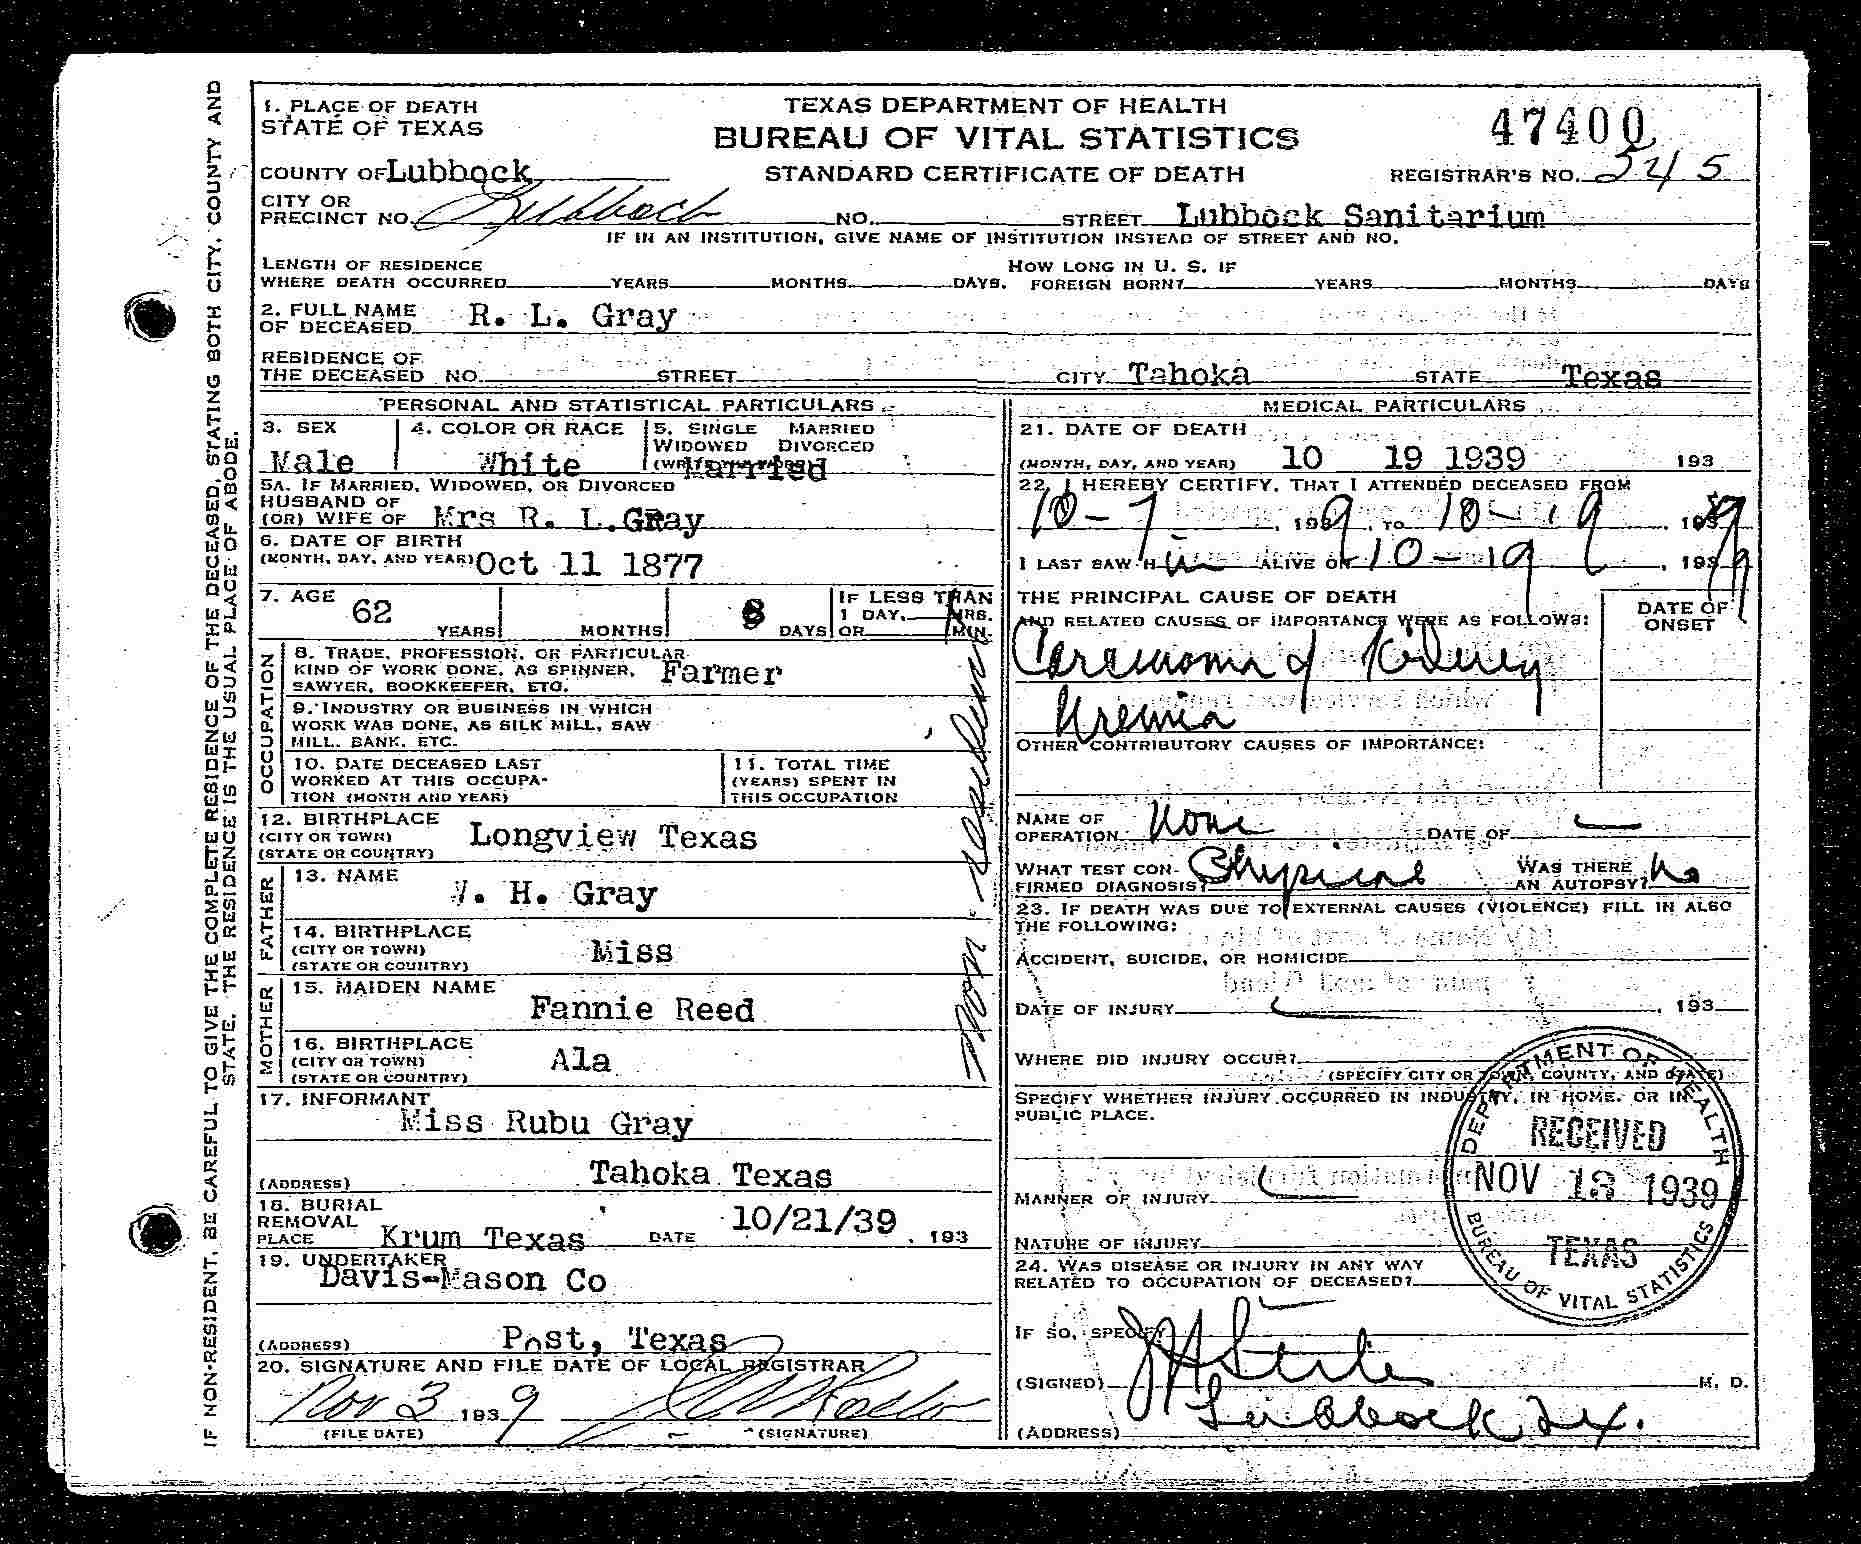 1. PLACE OF DEATH
STATE OF TEXAS
TEXAS DEPARTMENT OF HEALTH
BUREAU OF VITAL STATISTICS
STANDARD CERTIFICATE OF DEATH
47400
COUNTY OF Lubbock
REGISTRAR'S NO. 545
CITY OR
PRECINCT NO. Lubbock NO. STREET Lubbock Sanitarium
IF IN AN INSTITUTION, GIVE NAME OF INSTITUTION INSTEAD OF STREET AND NO.
LENGTH OF RESIDENCE
WHERE DEATH OCCURRED YEARS MONTHS DAYS. HOW LONG IN U. S. IF
FOREIGN BORN? YEARS MONTHS DAYS
2. FULL NAME
OF DECEASED R. L. Gray
RESIDENCE OF
THE DECEASED NO. STREET CITY Tahoka STATE Texas
PERSONAL AND STATISTICAL PARTICULARS
3. SEX
Male
4. COLOR OR RACE
White
5. SINGLE MARRIED
WIDOWED DIVORCED
Married
5A. IF MARRIED, WIDOWED, OR DIVORCED
HUSBAND OF
(OR) WIFE OF Mrs R. L. Gray
6. DATE OF BIRTH
(MONTH, DAY, AND YEAR) Oct 11 1877
7. AGE
62 YEARS MONTHS 8 DAYS
IF LESS THAN
1 DAY, HRS.
OR MIN.
OCCUPATION
8. TRADE, PROFESSION, OR PARTICULAR
KIND OF WORK DONE, AS SPINNER,
SAWYER, BOOKKEEPER, ETC. Farmer
9. INDUSTRY OR BUSINESS IN WHICH
WORK WAS DONE, AS SILK MILL, SAW
MILL, BANK, ETC.
10. DATE DECEASED LAST
WORKED AT THIS OCCUPA-
TION (MONTH AND YEAR)
11. TOTAL TIME
(YEARS) SPENT IN
THIS OCCUPATION
12. BIRTHPLACE
(CITY OR TOWN)
(STATE OR COUNTRY) Longview Texas
FATHER
13. NAME
H. Gray
14. BIRTHPLACE
(CITY OR TOWN)
(STATE OR COUNTRY) Miss
MOTHER
15. MAIDEN NAME
Fannie Reed
16. BIRTHPLACE
(CITY OR TOWN)
(STATE OR COUNTRY) Ala
17. INFORMANT
Miss Rubu Gray
(ADDRESS) Tahoka Texas
18. BURIAL
REMOVAL
PLACE Krum Texas DATE 10/21/39, 193
19. UNDERTAKER
Davis-Mason Co
(ADDRESS) Post, Texas
20. SIGNATURE AND FILE DATE OF LOCAL REGISTRAR
Nov 3 1939
(FILE DATE) (SIGNATURE)
Non-resident
MEDICAL PARTICULARS
21. DATE OF DEATH
(MONTH, DAY, AND YEAR) 10 19 1939 193
22. I HEREBY CERTIFY, THAT I ATTENDED DECEASED FROM
10-7, 1939, TO 10-19, 1939
I LAST SAW HIM ALIVE ON 10-19, 1939
THE PRINCIPAL CAUSE OF DEATH
AND RELATED CAUSES OF IMPORTANCE WERE AS FOLLOWS:
DATE OF
ONSET
Carcinoma of Kidney
Uremia
OTHER CONTRIBUTORY CAUSES OF IMPORTANCE:
NAME OF
OPERATION None DATE OF —
WHAT TEST CON-
FIRMED DIAGNOSIS? Physical WAS THERE
AN AUTOPSY? No
23. IF DEATH WAS DUE TO EXTERNAL CAUSES (VIOLENCE) FILL IN ALSO
THE FOLLOWING:
ACCIDENT, SUICIDE, OR HOMICIDE
DATE OF INJURY , 193
WHERE DID INJURY OCCUR?
(SPECIFY CITY OR TOWN, COUNTY, AND STATE)
SPECIFY WHETHER INJURY OCCURRED IN INDUSTRY, IN HOME, OR IN
PUBLIC PLACE.
MANNER OF INJURY
NATURE OF INJURY
24. WAS DISEASE OR INJURY IN ANY WAY
RELATED TO OCCUPATION OF DECEASED?
IF SO, SPECIFY
(SIGNED) M. D.
(ADDRESS) Lubbock Tex.
DEPARTMENT OF HEALTH
RECEIVED
NOV 13 1939
TEXAS
BUREAU OF VITAL STATISTICS
IF NON-RESIDENT, BE CAREFUL TO GIVE THE COMPLETE RESIDENCE OF THE DECEASED, STATING BOTH CITY, COUNTY AND
STATE. THE RESIDENCE IS THE USUAL PLACE OF ABODE.